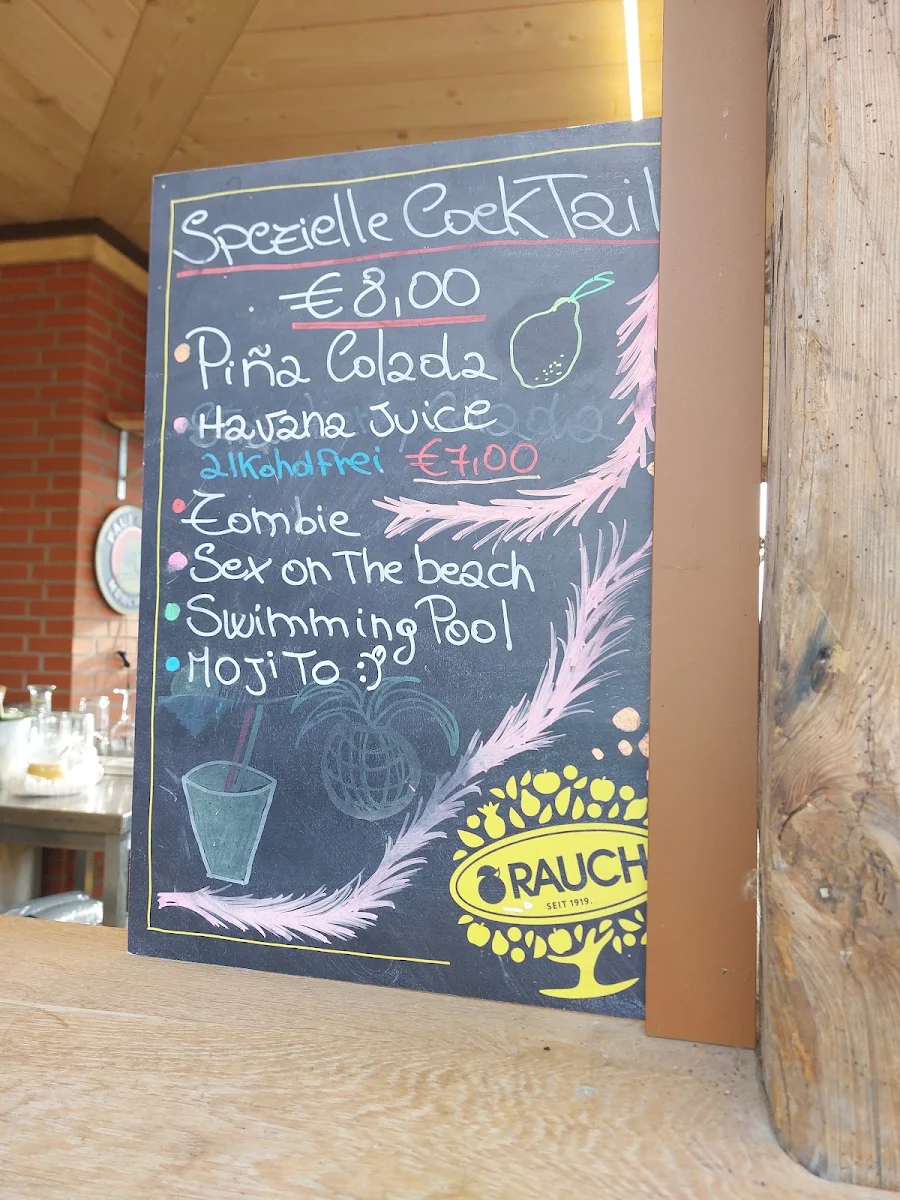 Spezielle CockTail
€8,00
Piña Colada
Havana Juice
alkoholfrei €7,00
Zombie
Sex on The beach
Swimming Pool
MojiTo :)
RAUCH
SEIT 1919.